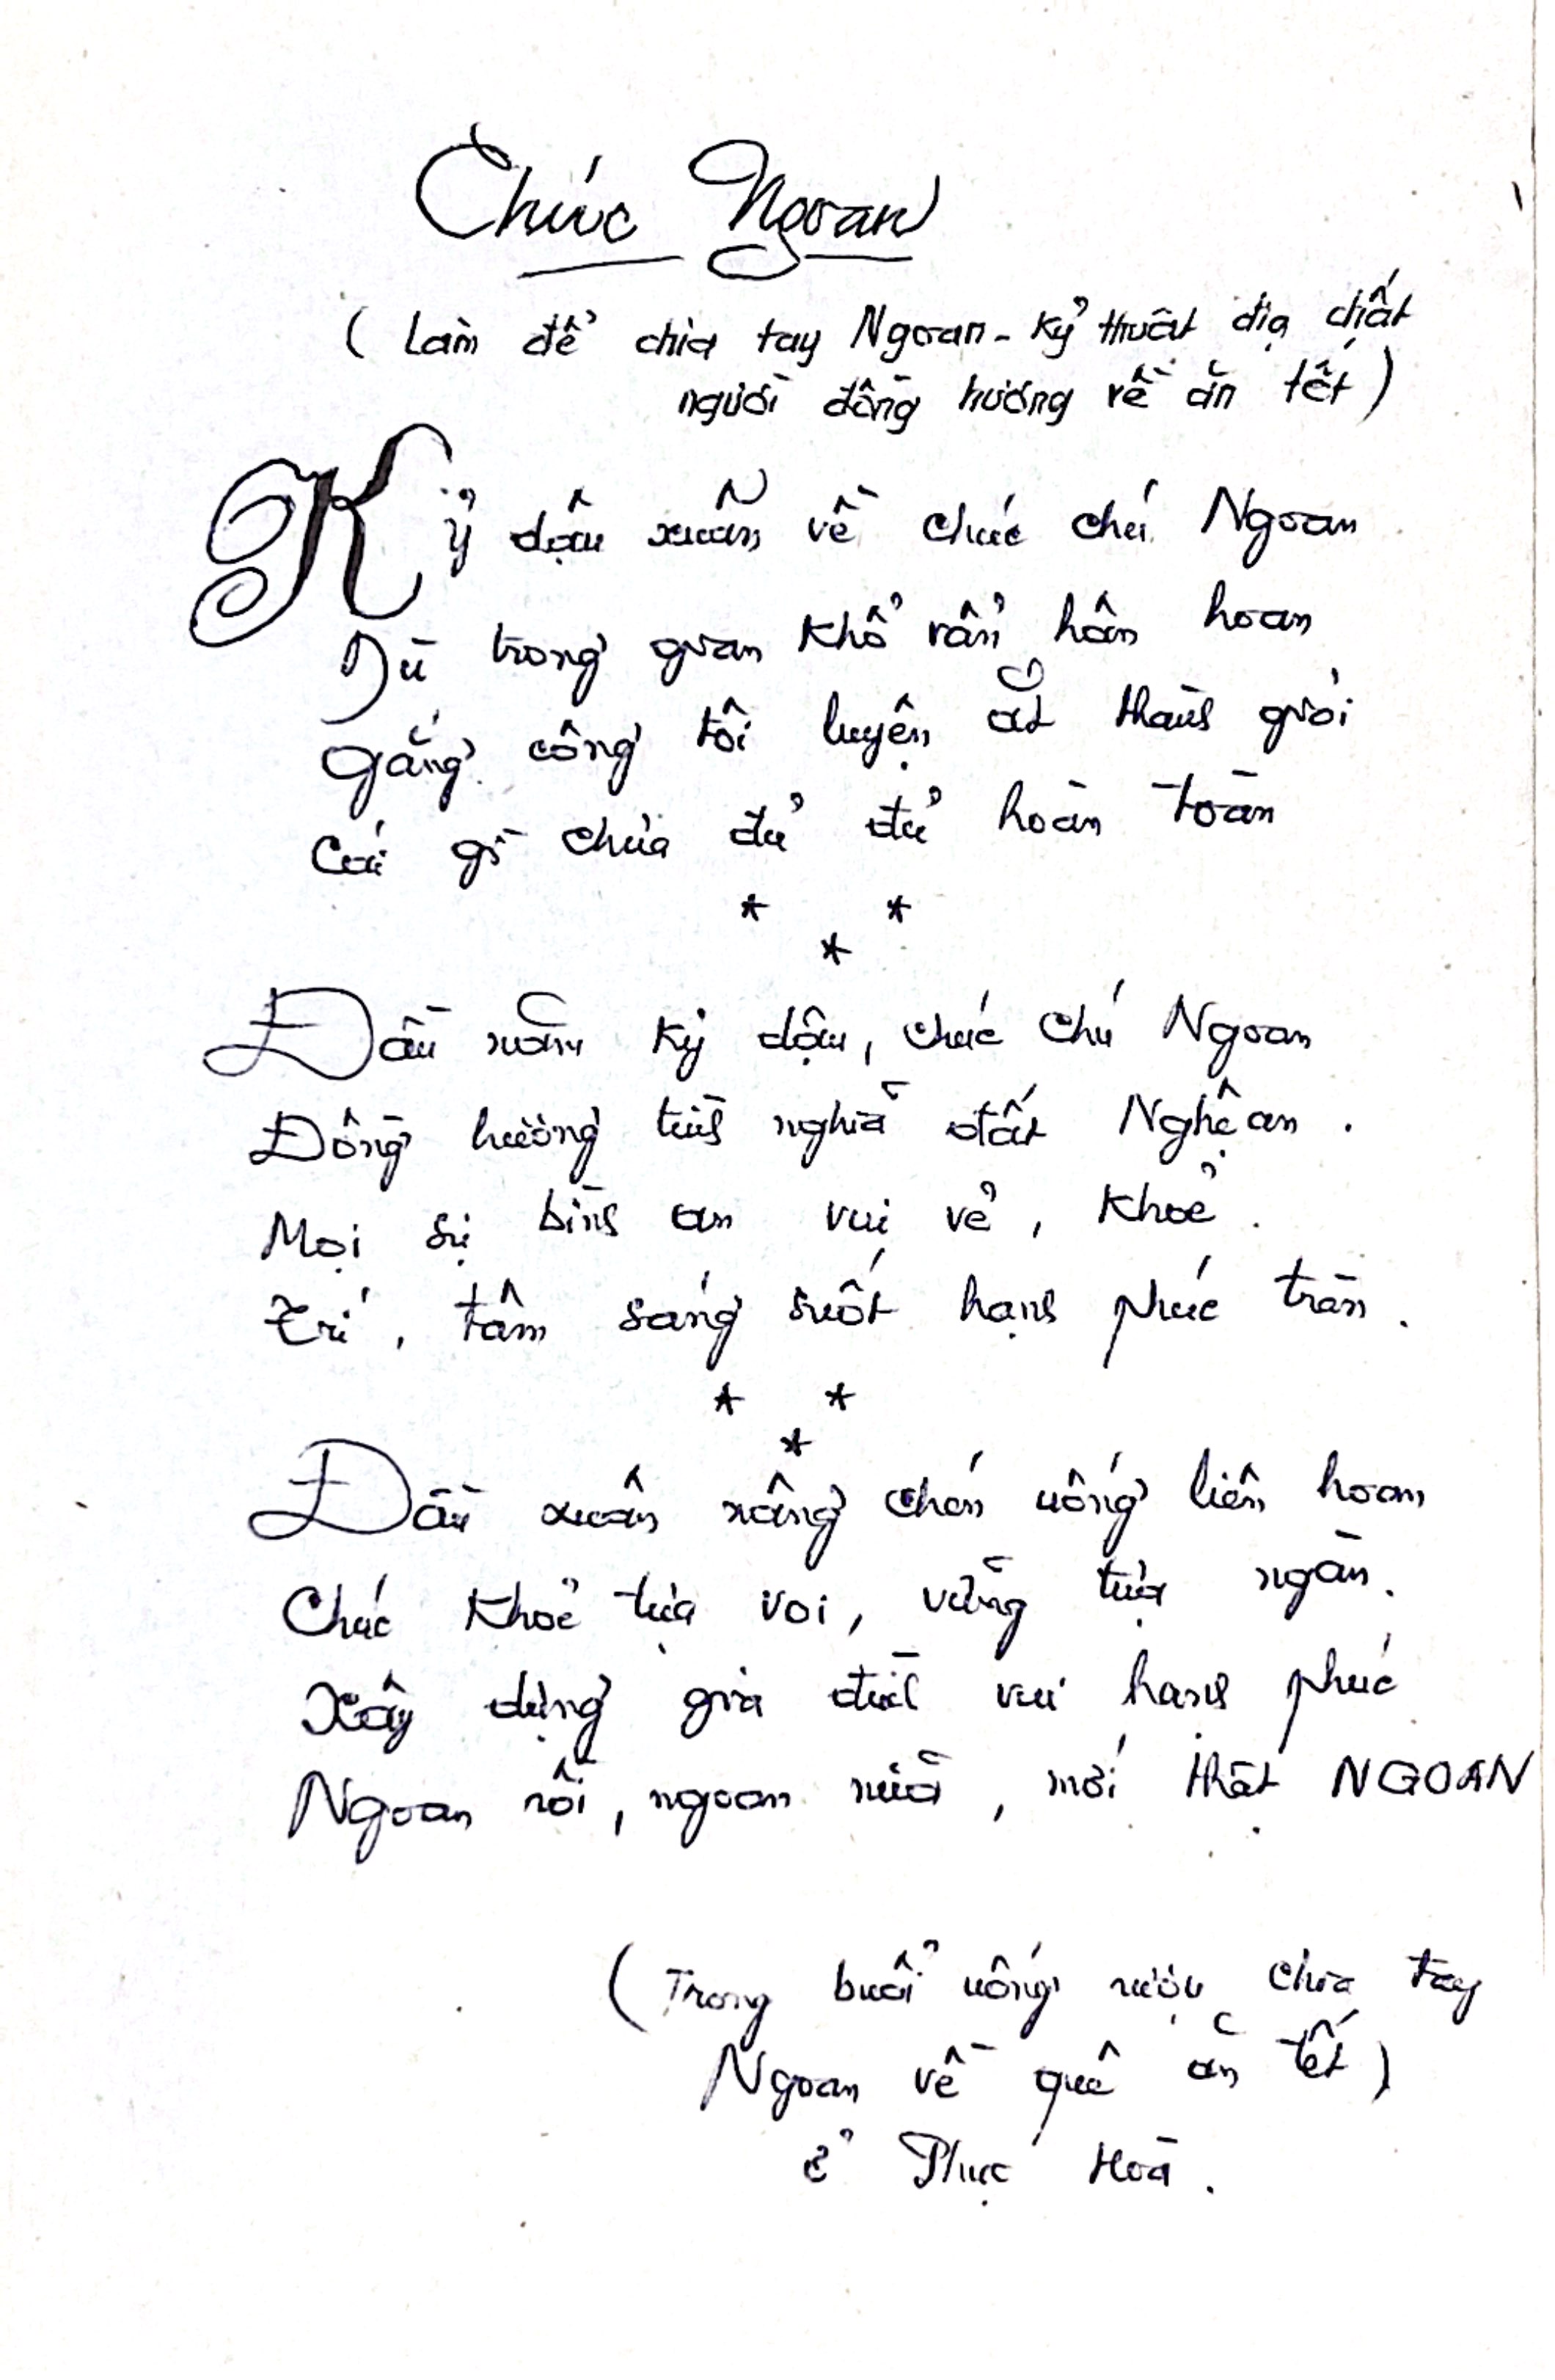 Chúc Ngoan
(Làm để chia tay Ngoan - kỷ thuật địa chất
người đồng hương về ăn tết)
Kỷ dậu xuân về chúc chú Ngoan
Dù trong gian khổ vẩn hân hoan
Gắng công tôi luyện ắt thành giỏi
Cái gì chưa đủ đủ hoàn toàn
* *
*
Đầu năm kỷ dậu, chúc chú Ngoan
Đồng hương tình nghĩa đất Nghệ an.
Mọi sự bình an vui vẻ, khoẻ.
Trí, tâm sáng suốt hạnh phúc tràn.
* *
*
Đầu xuân nâng chén uống liên hoan
Chúc khoẻ tựa voi, vững tựa ngàn.
Xây dựng gia đình vui hạnh phúc
Ngoan rồi, ngoan nữa, mới thật NGOAN
(Trong buổi uống rượu chia tay
Ngoan về quê ăn tết)
ở Phục Hoà.